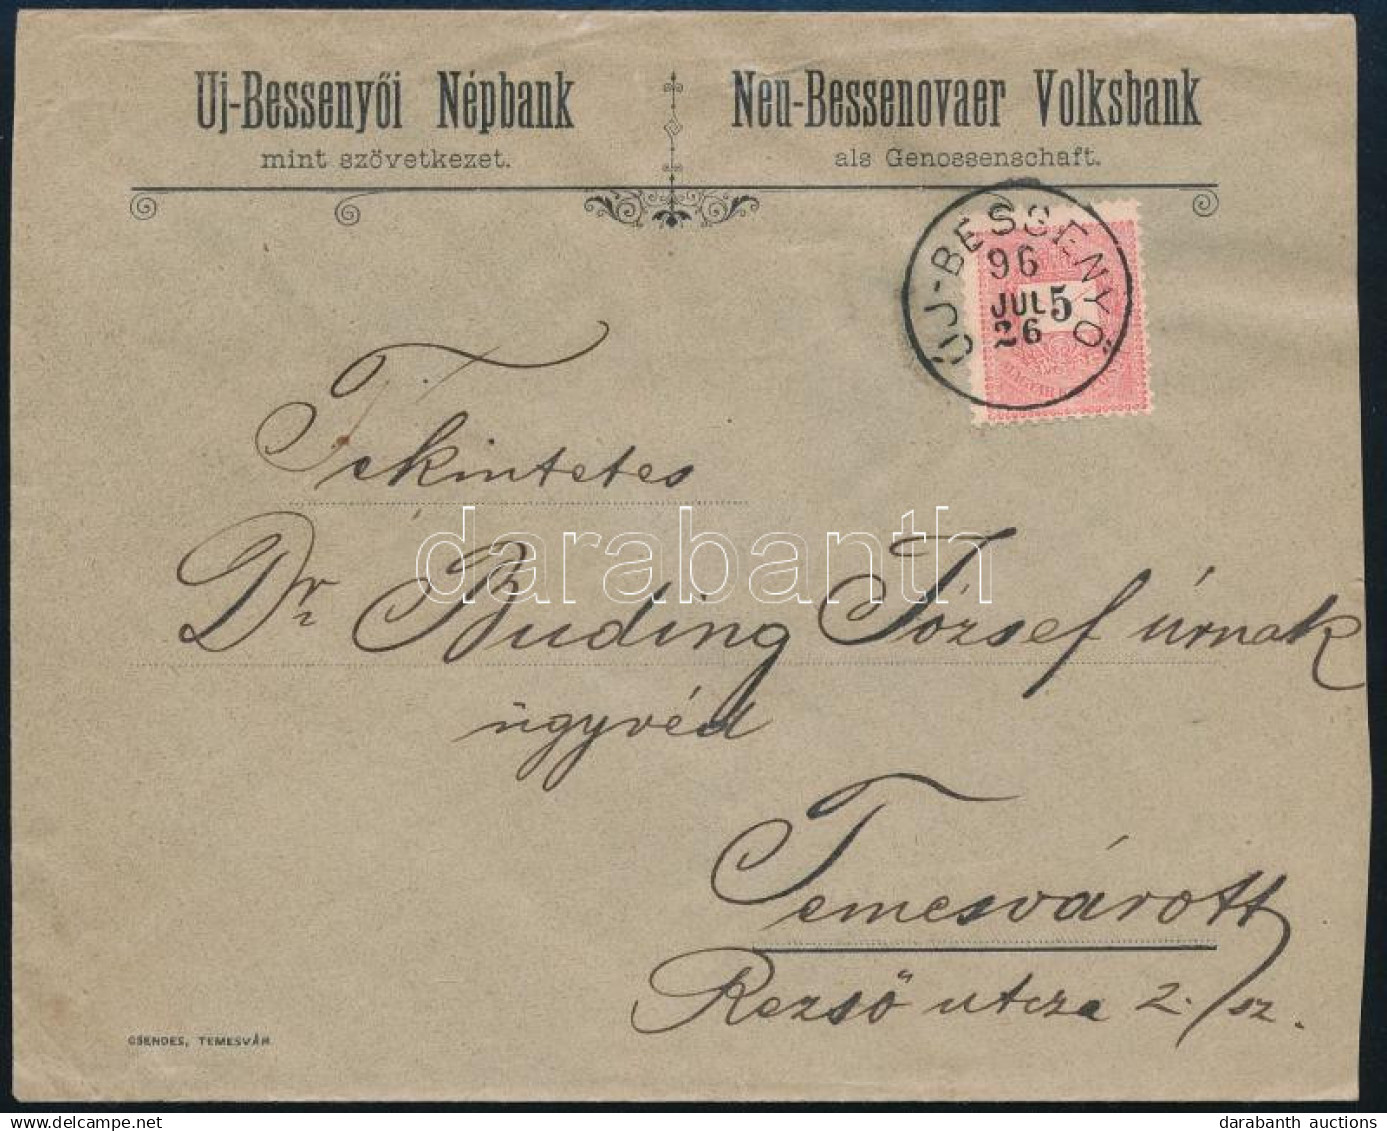 Uj-Bessenyői Népbank
mint szövetkezet.
Neu-Bessenovaer Volksbank
als Genossenschaft.
ÚJ-BESSENYŐ
96
JUL 5
26
MAGYAR
Tekintetes
Dr. Buding József úrnak
ügyvéd
Temesvárott
Rezső utcza 2. sz.
CSENDES, TEMESVÁR
darabanth
darabanth auctions